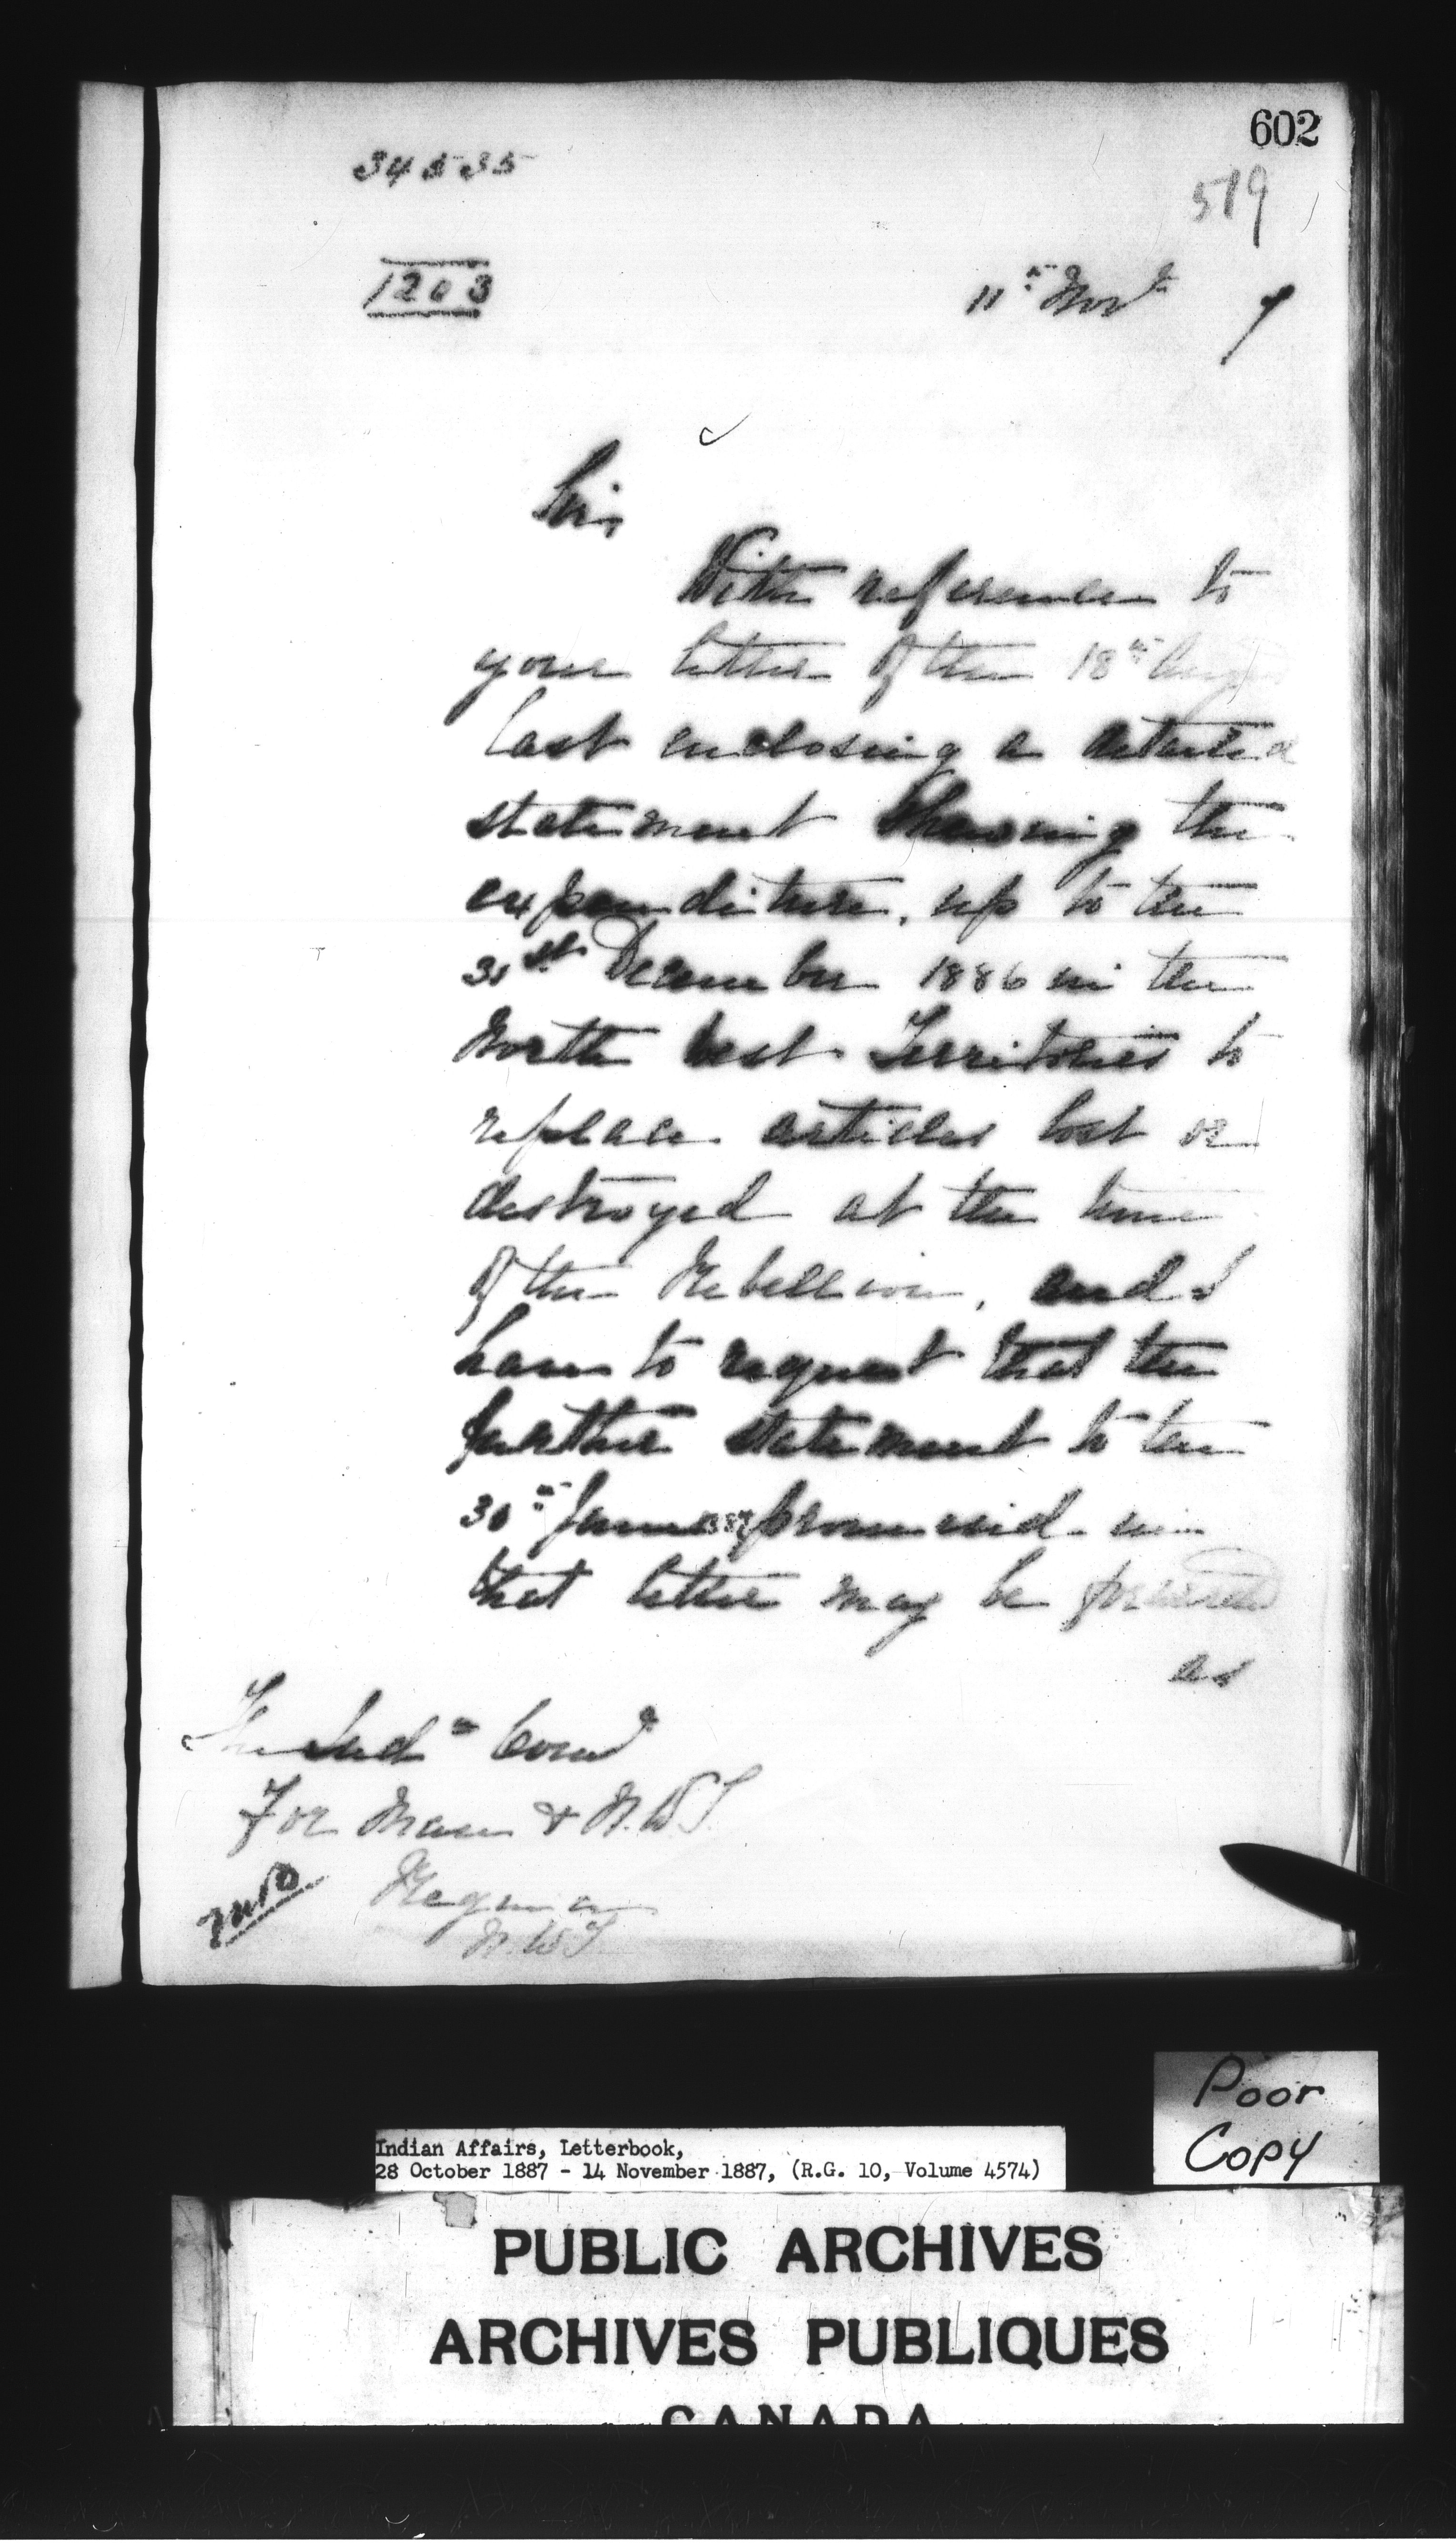 602
519
34535
1203
11th Novr 7
Sir,
With reference to
your letter of the 18th Augt
last enclosing a detailed
statement shewing the
expenditure, up to the
31st December 1886 in the
North West Territories to
replace articles lost or
destroyed at the time
of the Rebellion, and I
have to request that the
further statement to the
30th June 1887 promised in
that letter may be forwarded
as
The Indn Comr
For Man & N.W.T.
Regina
N.W.T.
Poor
Copy
Indian Affairs, Letterbook,
28 October 1887 - 14 November 1887, (R.G. 10, Volume 4574)
PUBLIC ARCHIVES
ARCHIVES PUBLIQUES
CANADA